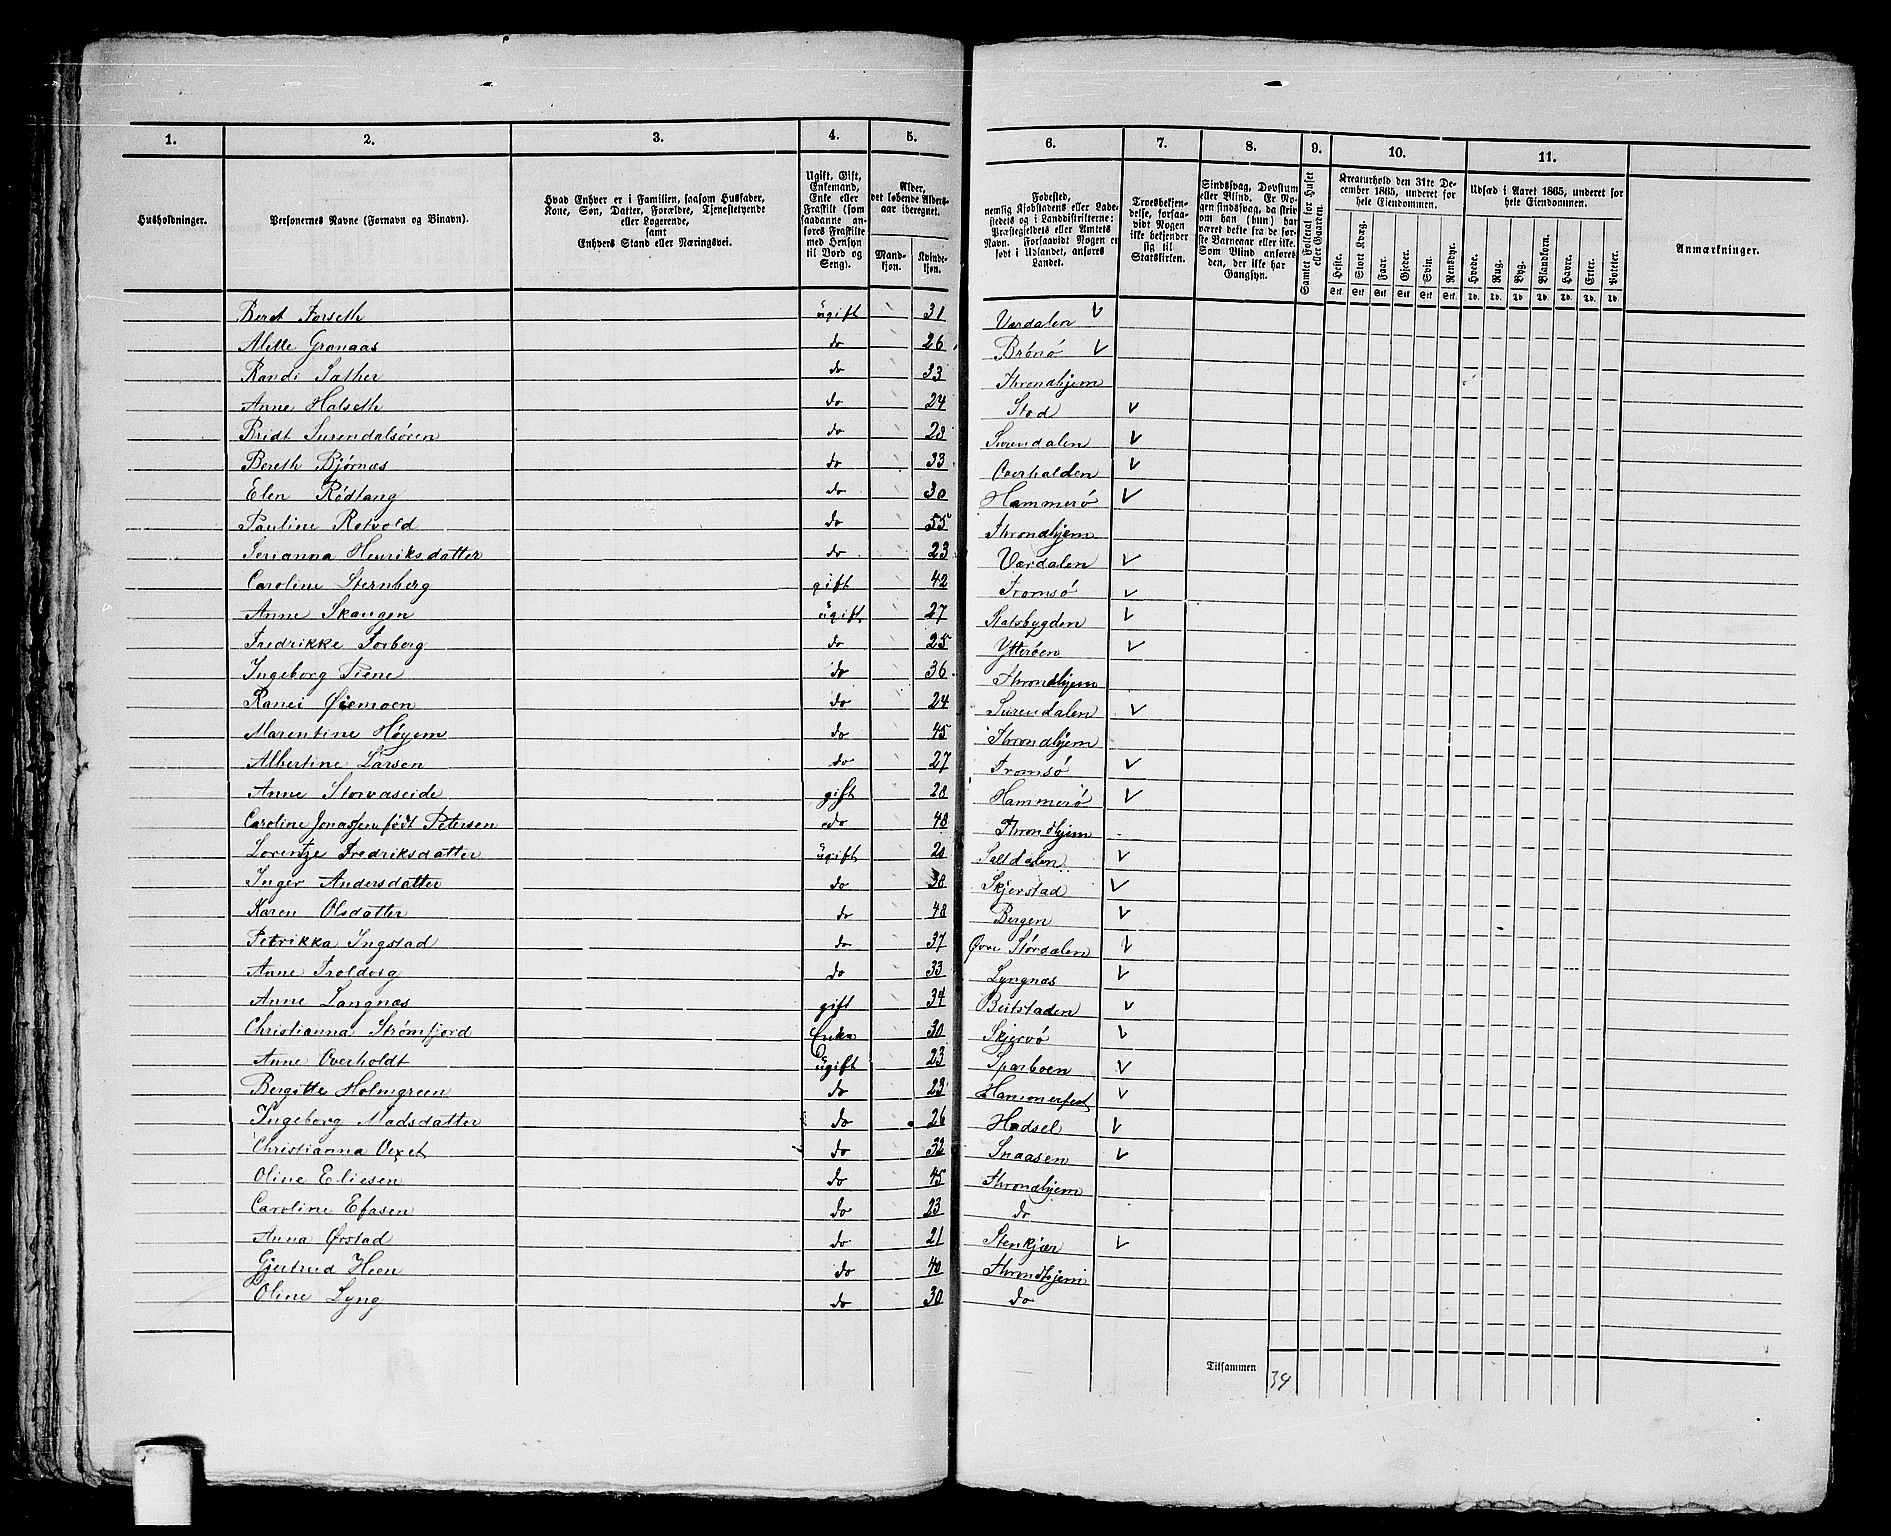 1. 2. 3. 4. 5. 6. 7. 8. 9. 10. 11.
Husholdninger.
Personernes Navne (Fornavn og Binavn).
Hvad Enhver er i Familien, saasom Husfader,
Kone, Søn, Datter, Forældre, Tjenestetyende
eller Logerende,
samt
Enhvers Stand eller Næringsvei.
Ugift, Gift,
Enkemand,
Enke eller
Fraskilt (som
saadanne an-
føres Fraskilte
med Hensyn
til Bord og
Seng).
Alder,
det løbende Alders-
aar iberegnet.
Mand-
kjøn.
Kvinde-
kjøn.
Fødested,
nemlig Kjøbstadens eller Lade-
stedets og i Landdistrikterne:
Præstegjeldets eller Amtets
Navn. Forsaavidt Nogen er
født i Udlandet, anføres
Landet.
Troesbekjen-
delse, forsaa-
vidt Nogen
ikke bekjender
sig til
Statskirken.
Sindssvag, Døvstum
eller Blind. Er No-
gen sindssvag, da skri-
ves, om han (hun) har
været dette fra de før-
ste Barneaar eller ikke.
Som Blind anføres
den, der ikke har
Gangsyn.
Samlet Folketal for Huset
eller Gaarden.
Kreaturhold den 31te De-
cember 1865, underet for
hele Eiendommen.
Heste. Stort Kvæg. Faar. Gjeder. Svin. Rensdyr.
Stk. Stk. Stk. Stk. Stk. Stk.
Udsæd i Aaret 1865, underet for
hele Eiendommen.
Hvede. Rug. Byg. Blandkorn. Havre. Erter. Poteter.
Td. Td. Td. Td. Td. Td. Td.
Anmærkninger.
Beret Forseth ugift 31 Værdalen
Mette Gronaas do 26 Brønø
Randi Sæther do 33 Throndhjem
Anne Halseth do 24 Stod
Bridt Surendalsøren do 28 Surendalen
Bereth Bjørnæs do 33 Overhalden
Elen Rødtang do 30 Hammerø
Pauline Rotvold do 55 Throndhjem
Serianna Henriksdatter do 23 Værdalen
Caroline Sternberg gift 42 Tromsø
Anne Skaugen ugift 27 Ratsbygden
Fredrikke Forberg do 25 Ytterøen
Ingeborg Piene do 36 Throndhjem
Ranei Øiemoen do 24 Surendalen
Marentine Høyem do 45 Throndhjem
Albertine Larsen do 27 Tromsø
Anne Storvaseide gift 28 Hammerø
Caroline Jonassen født Petersen do 48 Throndhjem
Lorentze Fredriksdatter ugift 20 Saltdalen
Inger Andersdatter do 38 Skjerstad
Karen Olsdatter do 48 Bergen
Petrikka Ingstad do 37 Øvre Størdalen
Anne Troldvig do 33 Lyngnæs
Anne Langnæs gift 34 Beitstaden
Christianna Strømfjord Enke 30 Skjervø
Anne Overholdt ugift 23 Sparboen
Bergitte Holmgreen do 23 Hammerfest
Ingeborg Madsdatter do 26 Hadsel
Christianna Vexet do 32 Snaasen
Oline Eliesen do 45 Throndhjem
Caroline Efasen do 23 do
Anna Ørstad do 21 Stenkjær
Gjertrud Heen do 40 Throndhjem
Oline Lyng do 30 do
Tilsammen 34